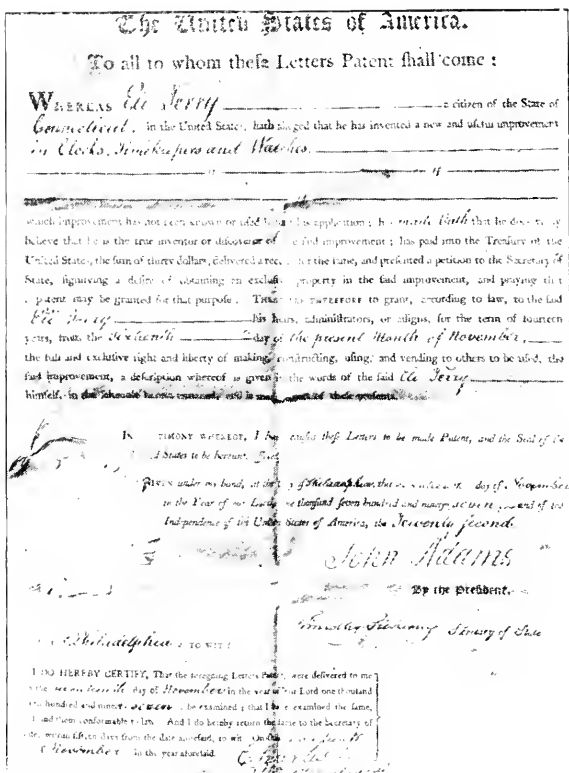 The United States of America.
To all to whom theſe Letters Patent ſhall come :
WHEREAS Eli Terry a citizen of the State of
Connecticut, in the United States, hath alleged that he has invented a new and uſeful improvement
in Clocks, Timekeepers and Watches.
which improvement has not been known or uſed before his application ; has made Oath that he does verily
believe that he is the true inventor or diſcoverer of the ſaid improvement ; has paid into the Treaſury of the
United States, the ſum of thirty dollars, delivered a receipt for the ſame, and preſented a petition to the Secretary of
State, ſignifying a deſire of obtaining an excluſive property in the ſaid improvement, and praying that
a patent may be granted for that purpoſe. THESE ARE THEREFORE to grant, according to law, to the ſaid
Eli Terry his heirs, adminiſtrators, or aſſigns, for the term of fourteen
years, from the Sixteenth day of the present Month of November,
the full and excluſive right and liberty of making, conſtructing, uſing, and vending to others to be uſed, the
ſaid improvement, a deſcription whereof is given in the words of the ſaid Eli Terry
himſelf, in the ſchedule hereto annexed, and is made a part of theſe preſents.
IN TESTIMONY WHEREOF, I have cauſed theſe Letters to be made Patent, and the Seal of the
United States to be hereunto
GIVEN under my hand, at the City of Philadelphia, this day of November
in the Year of our Lord, one thouſand ſeven hundred and ninety seven and of the
Independence of the United States of America, the Twenty second.
John Adams
By the Preſident.
Timothy Pickering Secretary of State
Philadelphia TO WIT :
I DO HEREBY CERTIFY, That the foregoing Letters Patent, were delivered to me
on the seventeenth day of November in the year of our Lord one thouſand
ſeven hundred and ninety seven to be examined ; that I have examined the ſame,
and find them conformable to law. And I do hereby return the ſame to the Secretary of
State, within fifteen days from the date aforeſaid, to wit : On this
of November in the year aforeſaid.